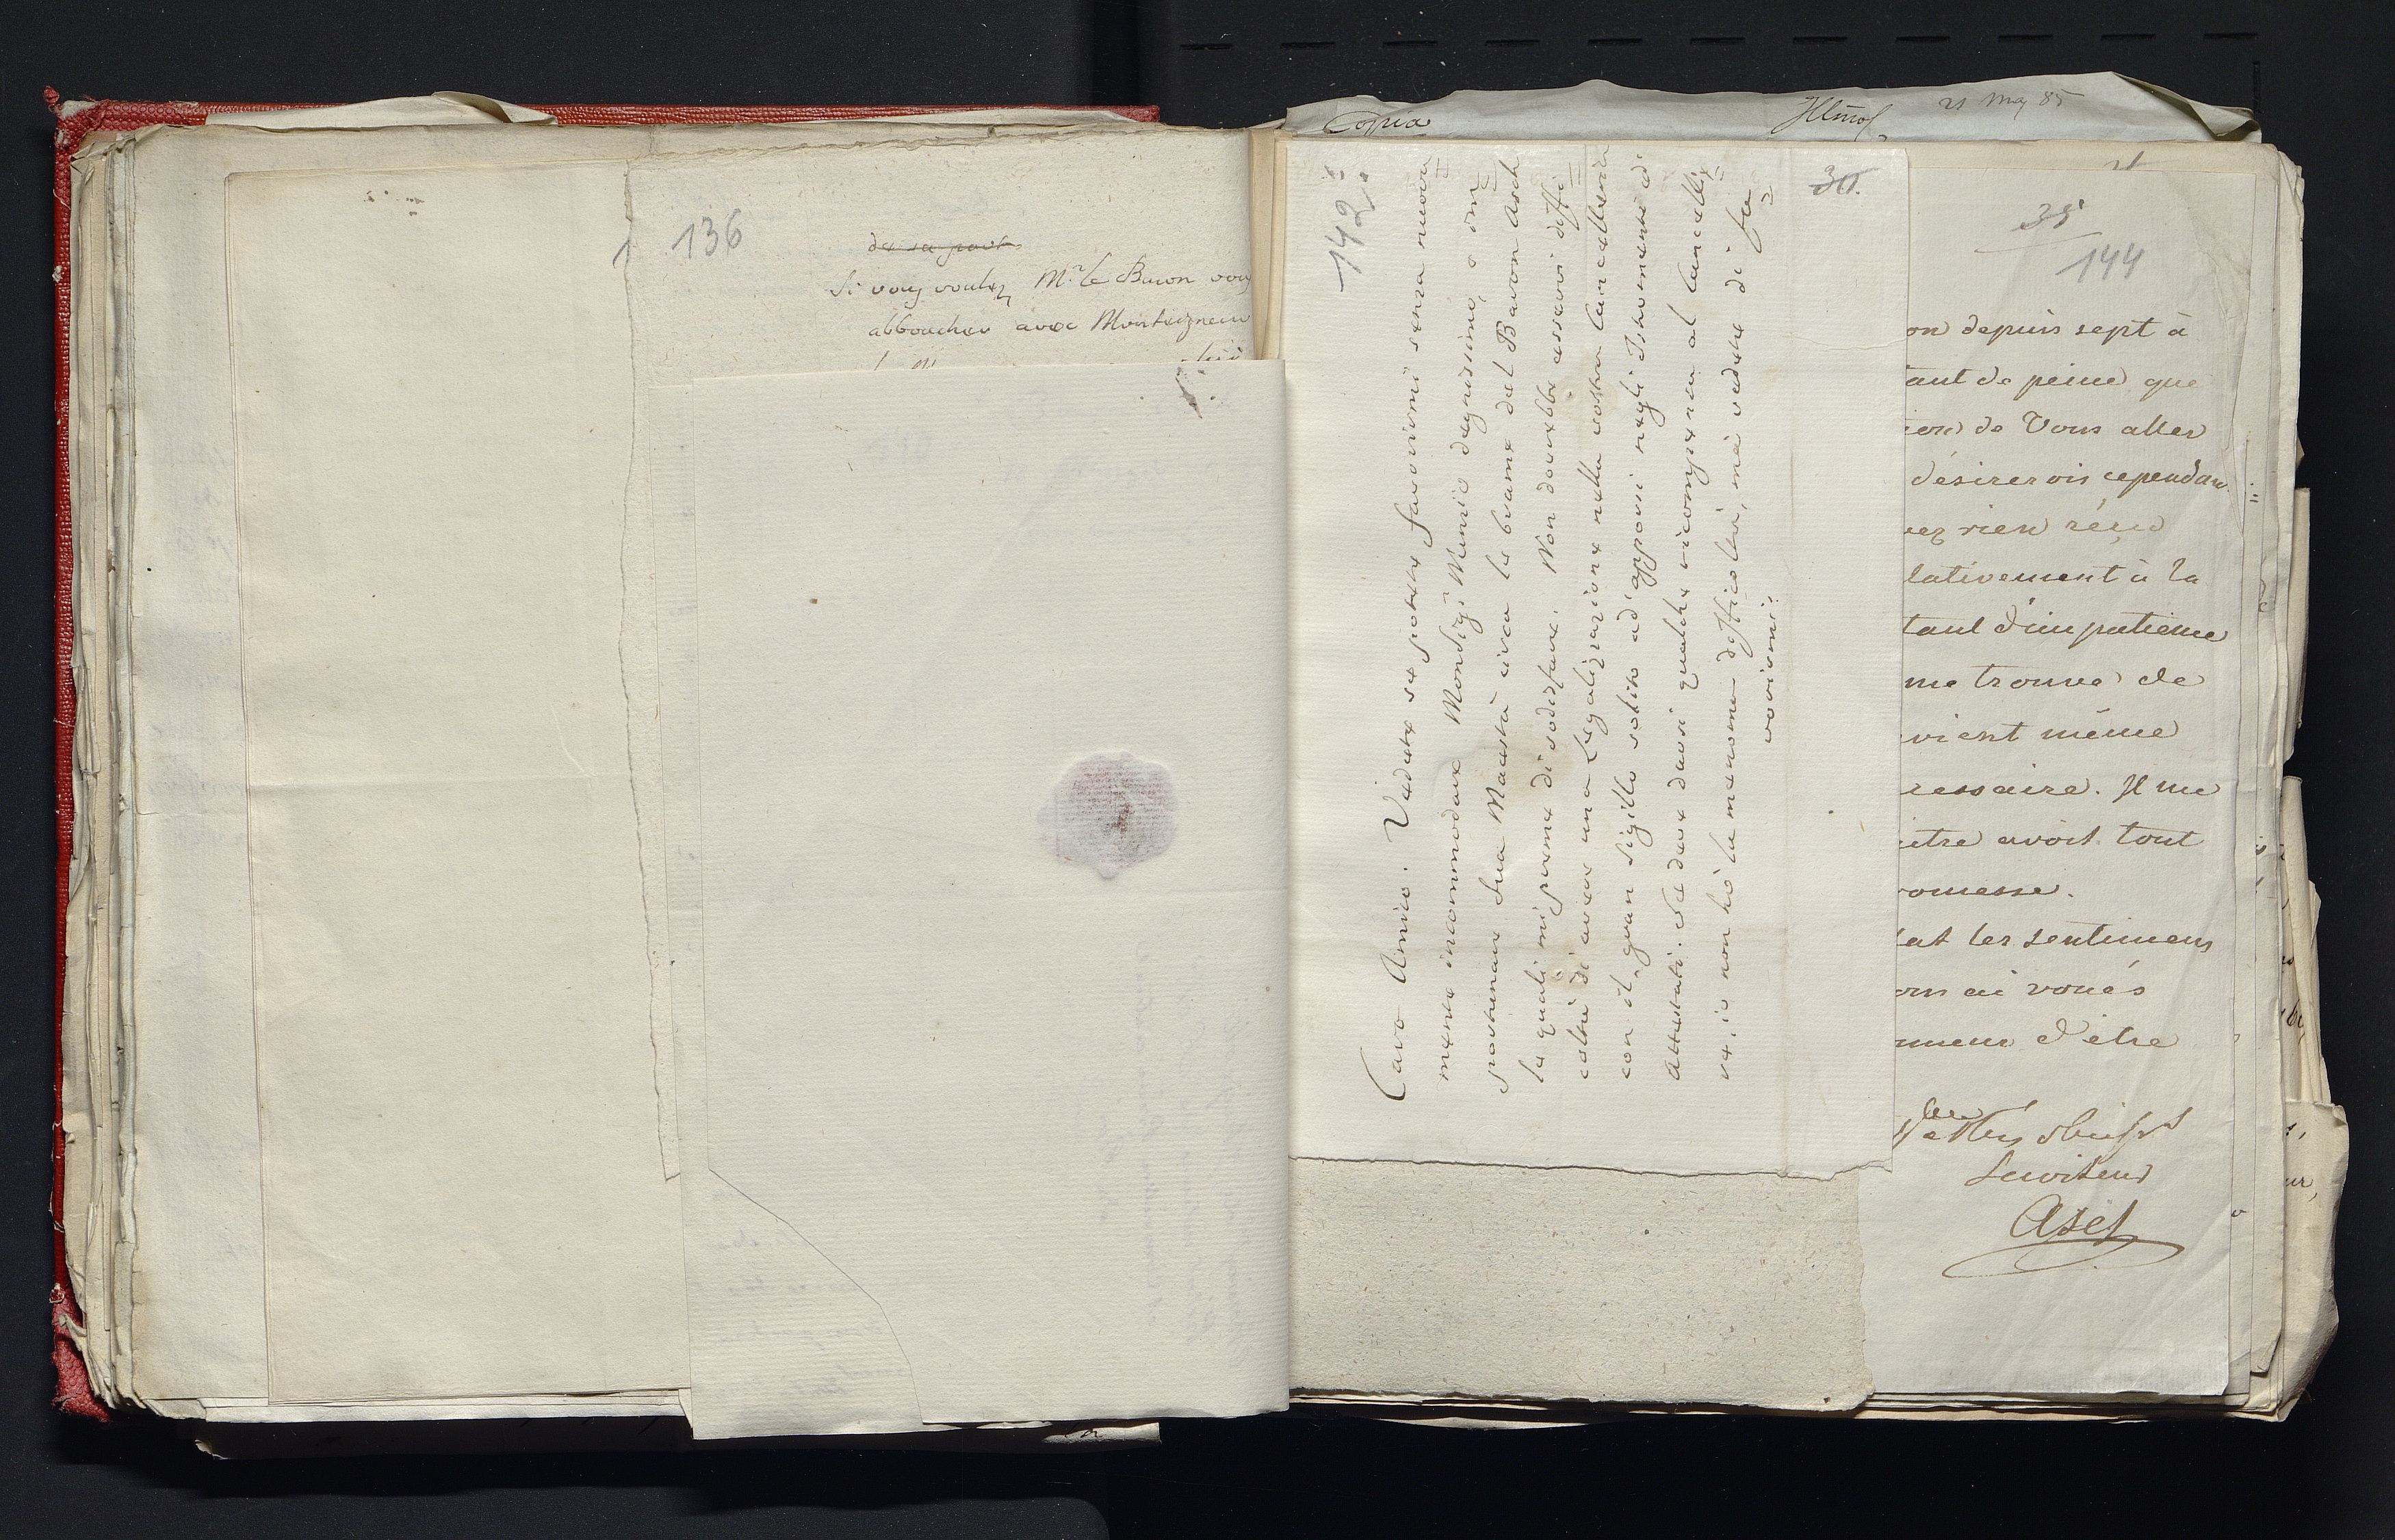 136
de sa part
Si vous voulez Mr. le Baron vous
abboucher avec Monseigneur
Copia
21 May 85
142.
Caro Amico. Vedete se potete favorirmi senza nuova=
mente incommodare Monsig. Nunzio degnissimo, o im=
portunare Sua Maestà circa le brame del Baron Asch
le quali mi preme di sodisfare. Non dovrebbe esservi diffi=
coltà di avere una Legalizzazione nella vostra Cancelleria
con il gran Sigillo solito ad' apporsi negli Istromenti ed
Attestati. Se deve darsi qualche ricompensa al Cancellie=
re, io non hò la menoma difficoltà, mà vedete di fa=
vorirmi.
30.
38
144
on depuis sept à
tant de peine que
ion de Vous aller
désirerois cependant
ez rien reçu
lativement à la
tant d'impatience
me trouve de
vient même
ressaire. Il me
itre avoit tout
romesse.
les sentimens
ous ai voués
nneur d'être
Serviteur
Asch